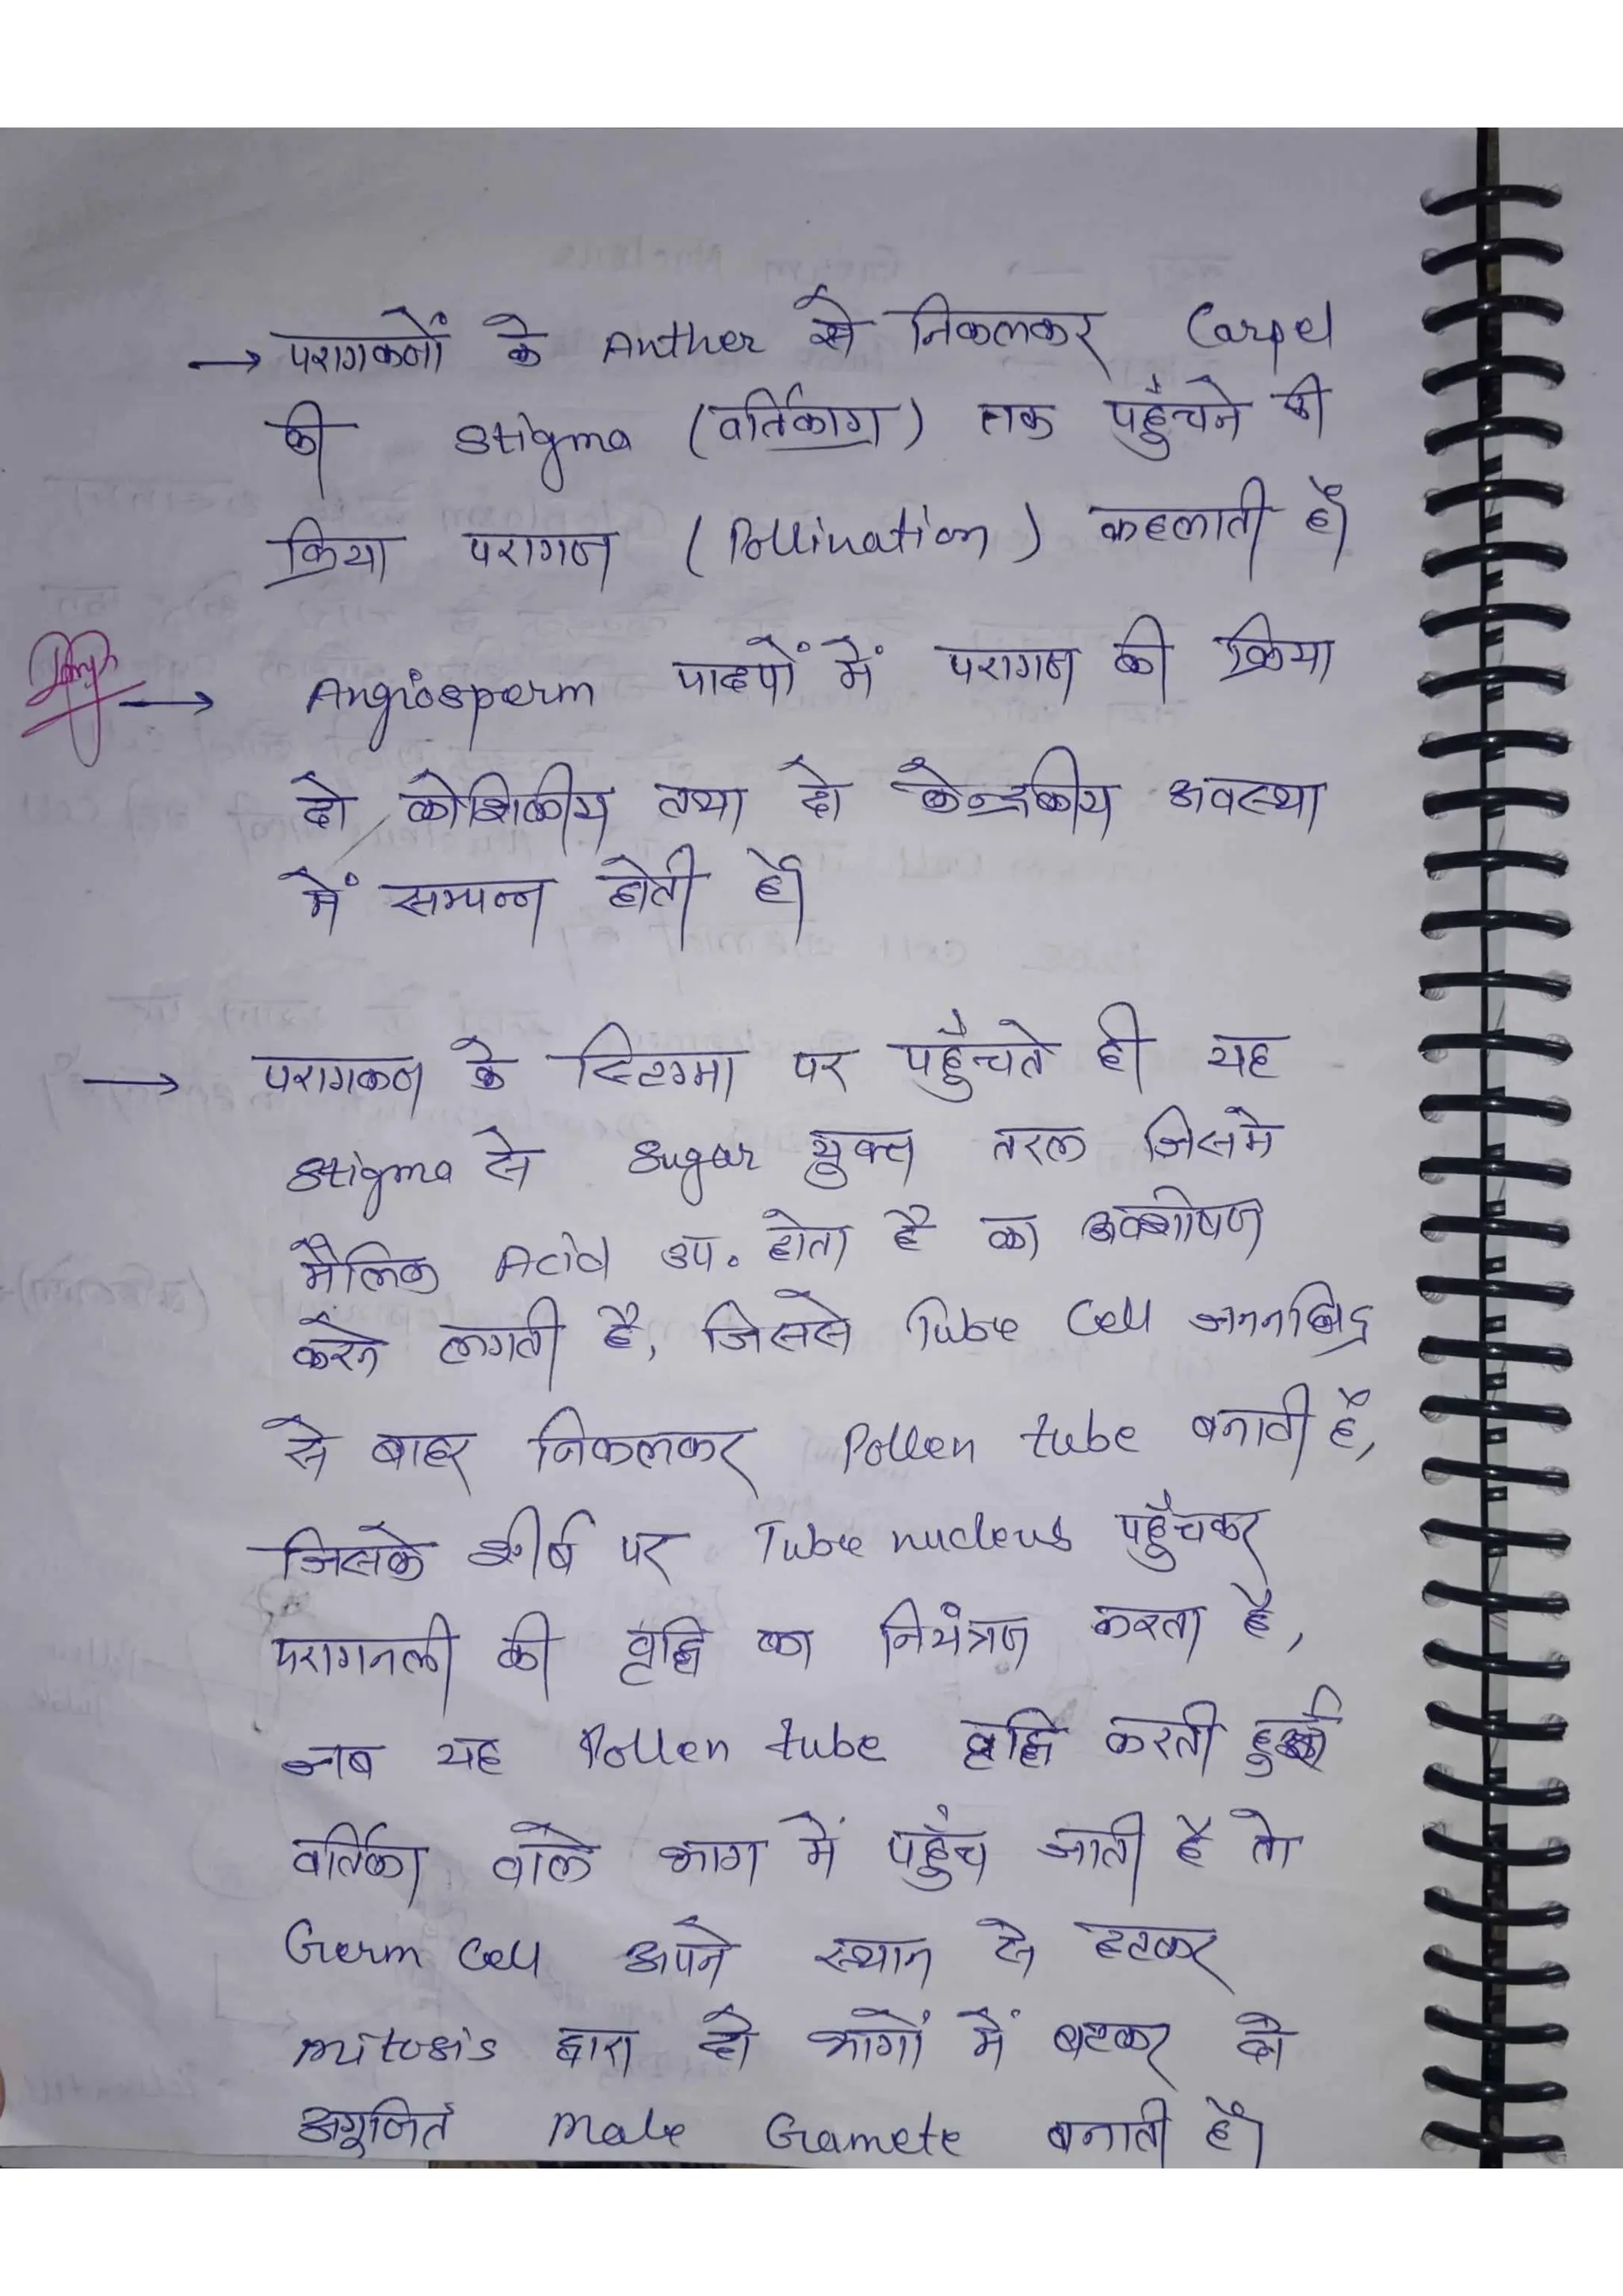 → परागकणों के Anther से निकलकर Carpel
की Stigma (वर्तिकाग्र) तक पहुँचने की
क्रिया परागण (Pollination) कहलाती है।
Imp
→ Angiosperm पादपों में परागण की क्रिया
दो कोशिकीय तथा दो केन्द्रकीय अवस्था
में सम्पन्न होती है।
→ परागकण के स्टिग्मा पर पहुँचते ही यह
Stigma से Sugar युक्त तरल जिसमे
मैलिक Acid उप. होता है का अवशोषण
करने लगती है, जिससे Tube Cell जननछिद्र
से बाहर निकलकर Pollen tube बनाती है,
जिसके शीर्ष पर Tube nucleus पहुँचकर
परागनली की वृद्धि का नियंत्रण करता है,
जब यह Pollen tube वृद्धि करती हुई
वर्तिका वाले भाग में पहुँच जाती है तो
Germ Cell अपने स्थान से हटकर
mitosis द्वारा दो भागों में बटकर दो
अगुणित male Gamete बनाती है।